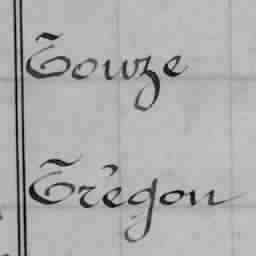 Touze
Trégon